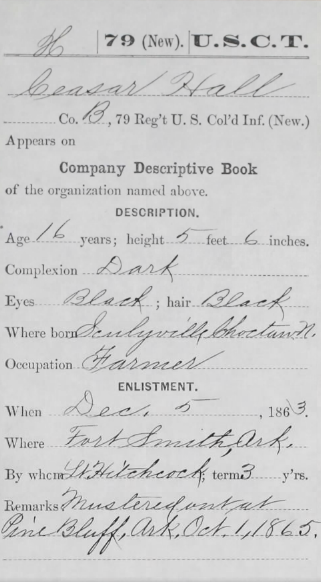 H | 79 (New). | U.S.C.T.
Ceasar Hall
Co. B, 79 Reg't U. S. Col'd Inf. (New.)
Appears on
Company Descriptive Book
of the organization named above.
DESCRIPTION.
Age 16 years; height 5 feet 6 inches.
Complexion Dark
Eyes Black; hair Black
Where born Sculyville Choctaw N.
Occupation Farmer
ENLISTMENT.
When Dec. 5, 1863.
Where Fort Smith, Ark.
By whom Lt. Hitchcock; term 3 y'rs.
Remarks Mustered out at
Pine Bluff, Ark, Oct. 1, 1865.